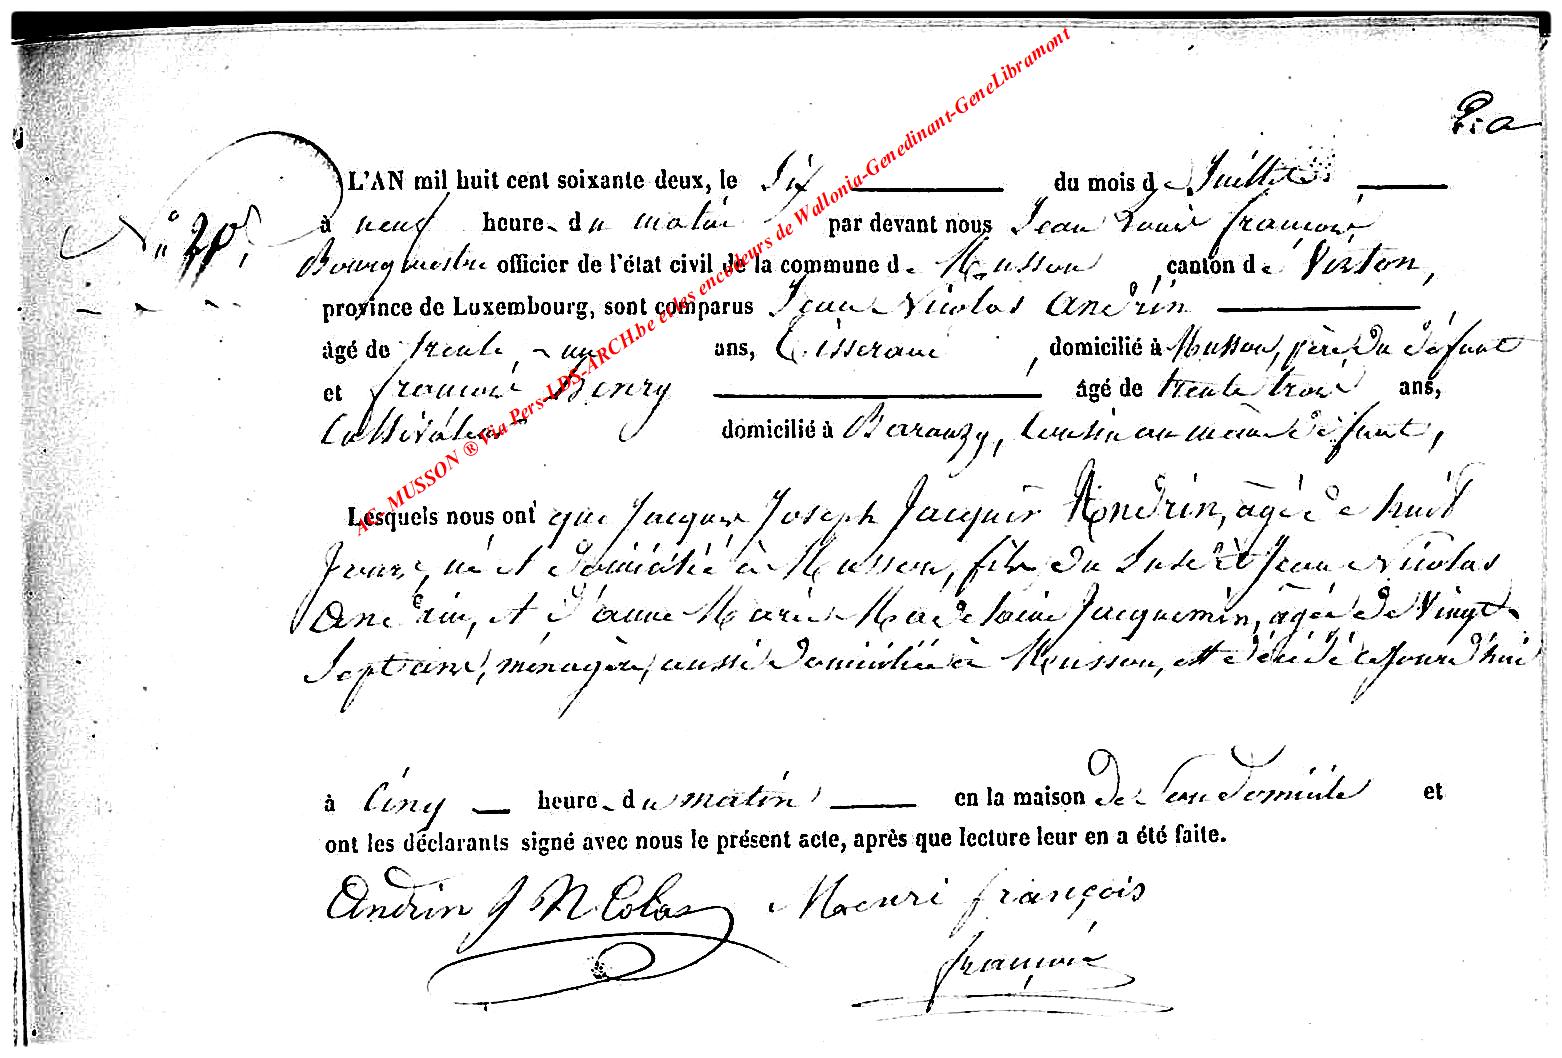 L'AN mil huit cent soixante deux, le Six du mois de Juillet
N° 20.
à neuf heure du matin par devant nous Jean Louis François
Bourgmestre officier de l'état civil de la commune de Musson, canton de Virton,
province de Luxembourg, sont comparus Jean Nicolas Andrin
âgé de trente-un ans, Tisserand, domicilié à Musson, père du défunt
et François Henry âgé de trente trois ans,
Cultivateur domicilié à Baranzy, Cousin au même défunt,
Lesquels nous ont que Jacques Joseph Jacques Andrin, âgé de huit
Jours, né et domicilié à Musson, fils du susdit Jean Nicolas
Andrin, et d'anne Marie Madelaine Jacquemin, âgée de Vingt
Sept ans, ménagère, aussi domiciliée à Musson, est décédé cejourd'hui
à Cinq heure du matin en la maison de Son domicile et
ont les déclarants signé avec nous le présent acte, après que lecture leur en a été faite.
Andrin J N Colas Henri françois
françois
AC. MUSSON ® Via Pers-LDS-ARCH.be et les encodeurs de Wallonia-Genedinant-GeneLibramont